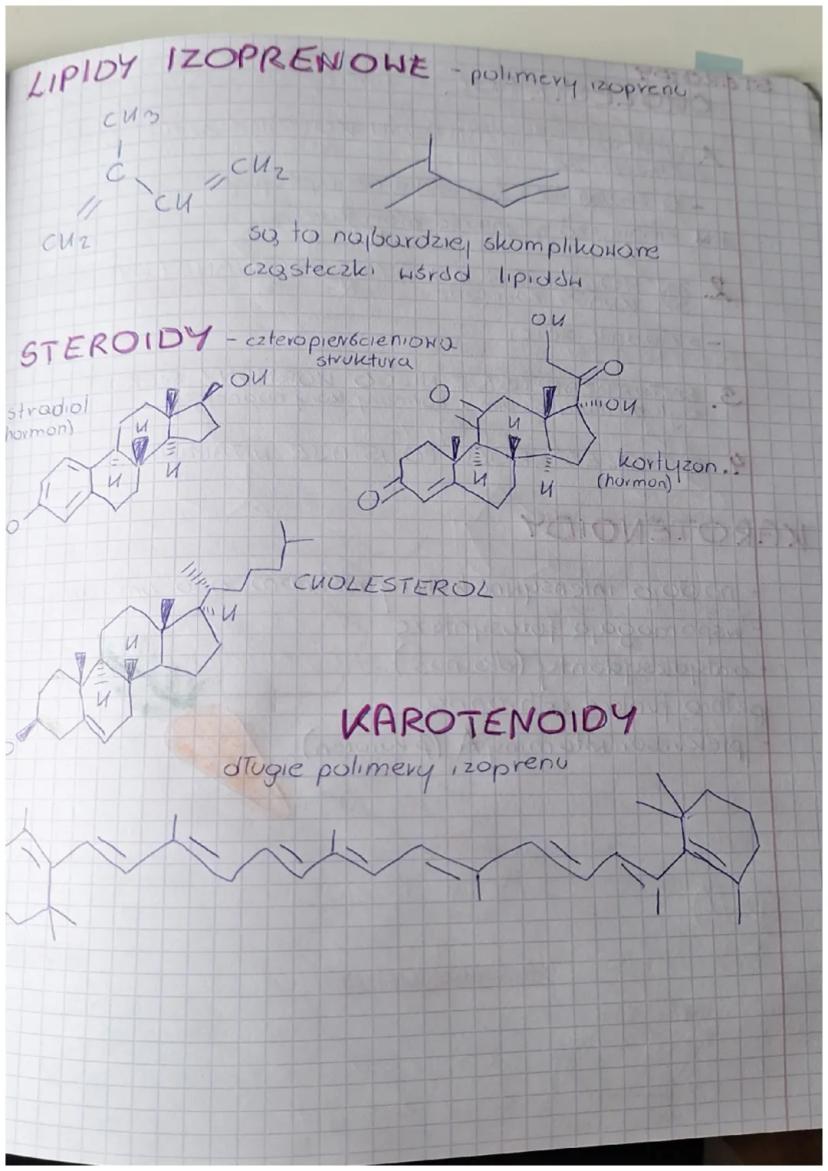 LIPIDY IZOPRENOWE - polimery izoprenu
CH3
C
CH2
CH
CH2
są to najbardziej skomplikowane
cząsteczki wśród lipidów
OH
STEROIDY - czteropierścieniowa
struktura
OH
O
O
OH
stradiol
hormon)
H
H
H
H
H
H
kortyzon
(hormon)
O
O
CHOLESTEROL
H
H
H
O
KAROTENOIDY
długie polimery izoprenu